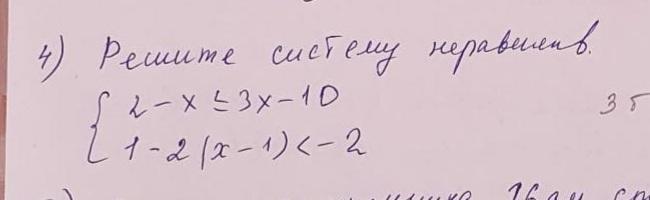 4) Решите систему неравенств.
{ 2 - x ≤ 3x - 10
1 - 2(x - 1) < -2
3 б